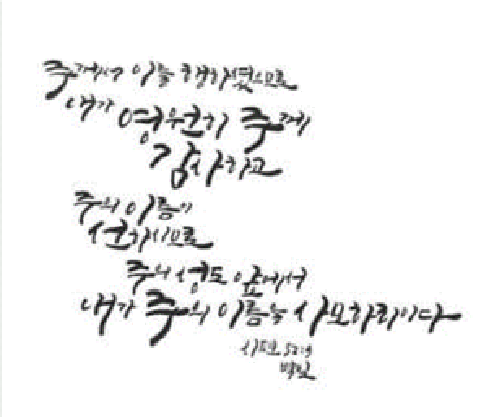 주께서 이를 행하셨으므로
내가 영원히 주께
감사하고
주의 이름이
선하시므로
주의 성도 앞에서
내가 주의 이름을 사모하리이다
시편 52:9